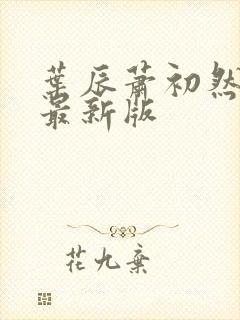 葉辰蕭初然
最新版
花九棄